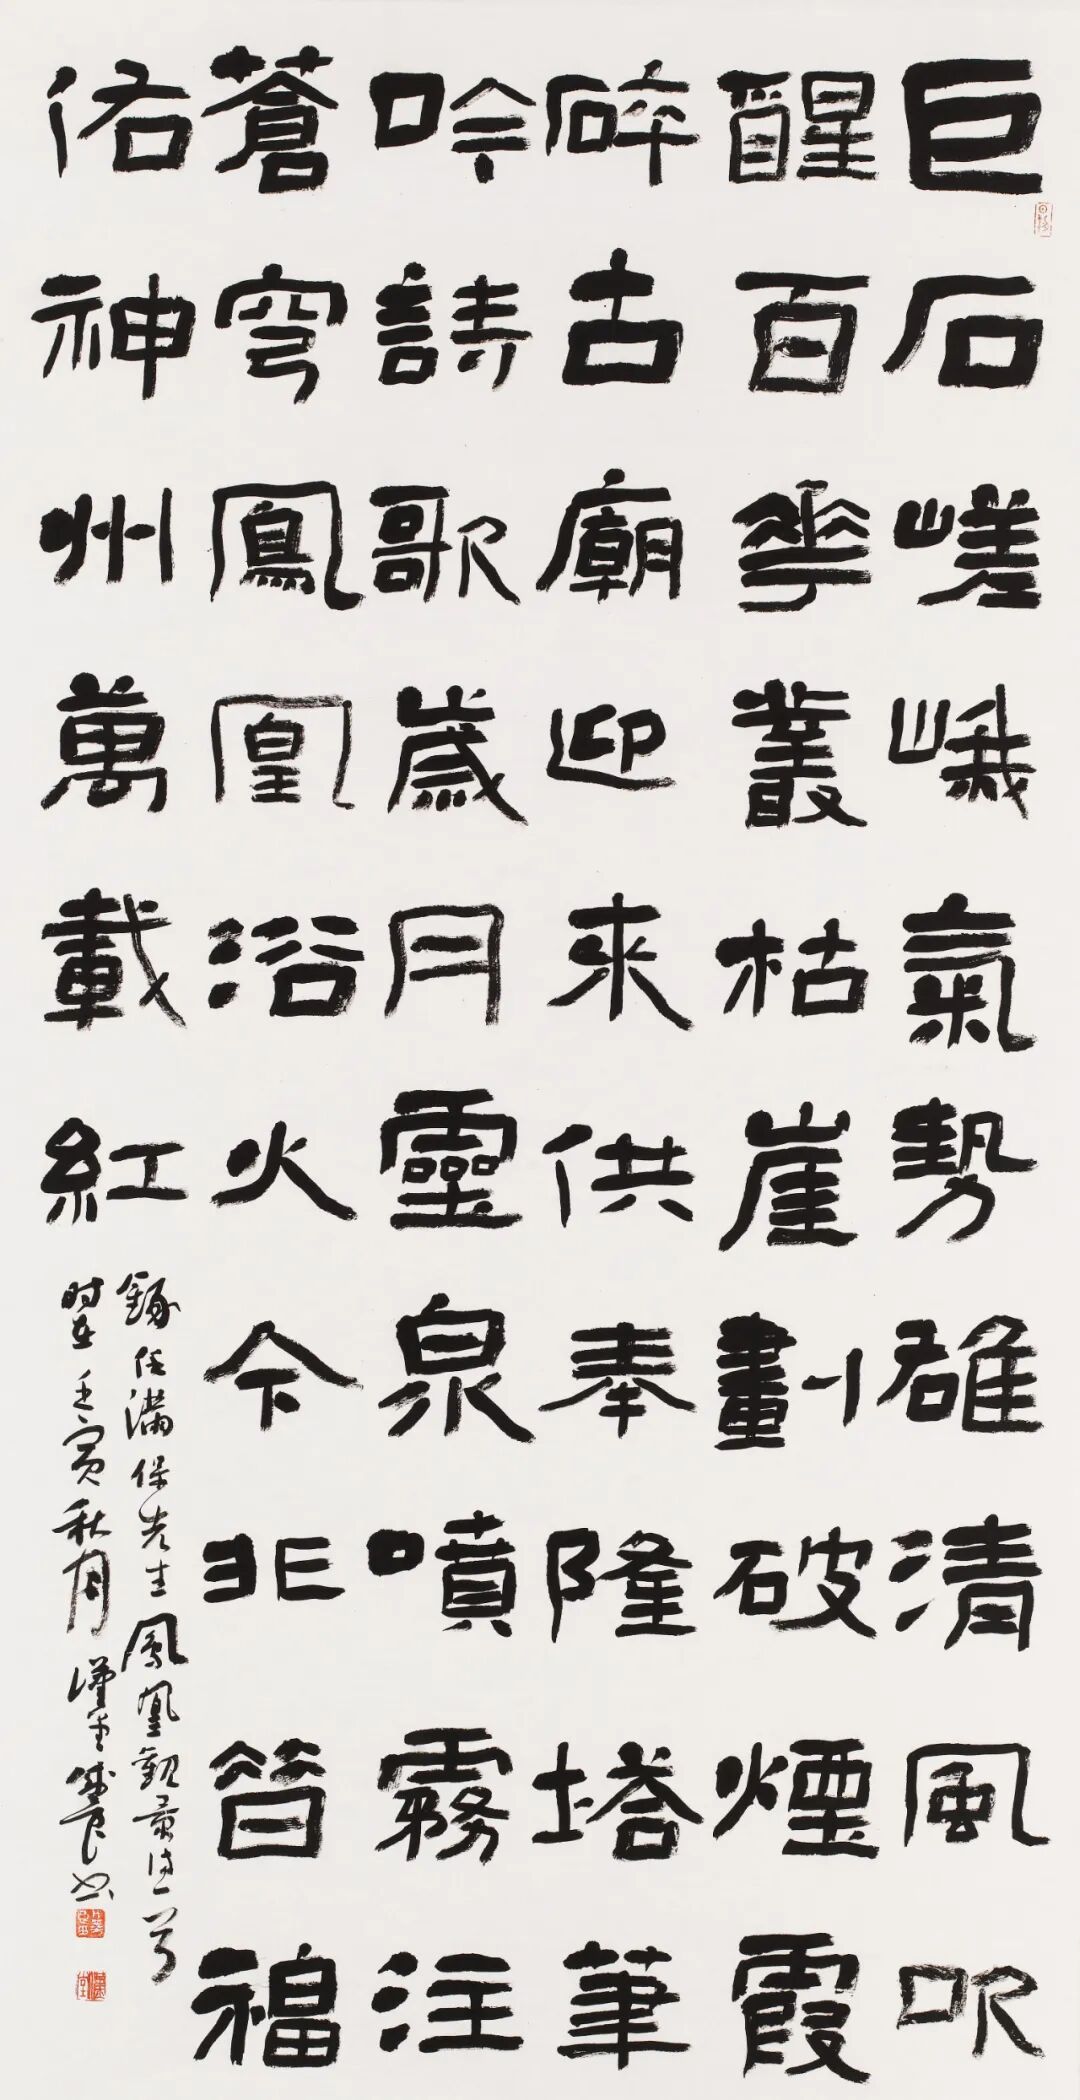 巨石嵯峨氣勢雄清風吹
醒百華叢枯崖劃破煙霞
碎古廟迎來供奉隆塔筆
吟詩歌歲月靈泉噴霧注
蒼穹鳳凰浴火今非昔福
佑神州萬載紅
錄任滿保先生鳳凰觀景詩一首
时在壬寅秋月漢堂书